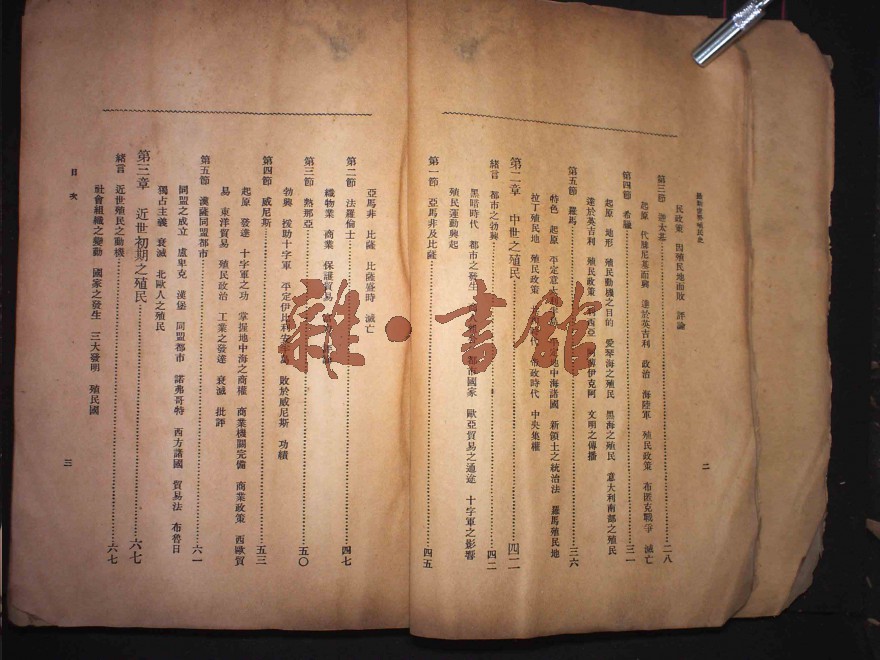 最新世界殖民史
二
民政策 因殖民地而敗 評論
第三節 迦太基……二八
起原 代腓尼基而興 達於英吉利 政治 海陸軍 殖民政策 布匿克戰爭 滅亡
第四節 希臘……三一
起原 地形 殖民動機之目的 愛琴海之殖民 黑海之殖民 意大利南部之殖民
達於英吉利 殖民政策 文明之傳播
第五節 羅馬……三六
特色 起原 平定意大利 地中海諸國 新領土之統治法 羅馬殖民地
拉丁殖民地 殖民政策 帝政時代 中央集權
第二章 中世之殖民……四二
緒言 都市之勃興……四二
黑暗時代 都市之發生 都市國家 歐亞貿易之通途 十字軍之影響
殖民運動興起
第一節 亞馬非及比薩……四五
亞馬非 比薩 比薩盛時 滅亡
第二節 法羅倫士……四七
織物業 商業 保護貿易
第三節 熱那亞……五〇
勃興 援助十字軍 平定伊比利安半島 敗於威尼斯 功績
第四節 威尼斯……五三
起原 發達 十字軍之功 掌握地中海之商權 商業機關完備 商業政策 西歐貿
易 東洋貿易 殖民政治 工業之發達 衰滅 批評
第五節 漢薩同盟都市……六一
同盟之成立 盧卑克 漢堡 同盟都市 諾弗哥特 西方諸國 貿易法 布魯日
獨占主義 衰滅 北歐人之殖民
第三章 近世初期之殖民……六七
緒言 近世殖民之動機……六七
社會組織之變動 國家之發生 三大發明 殖民國
目次
三
雜·書館